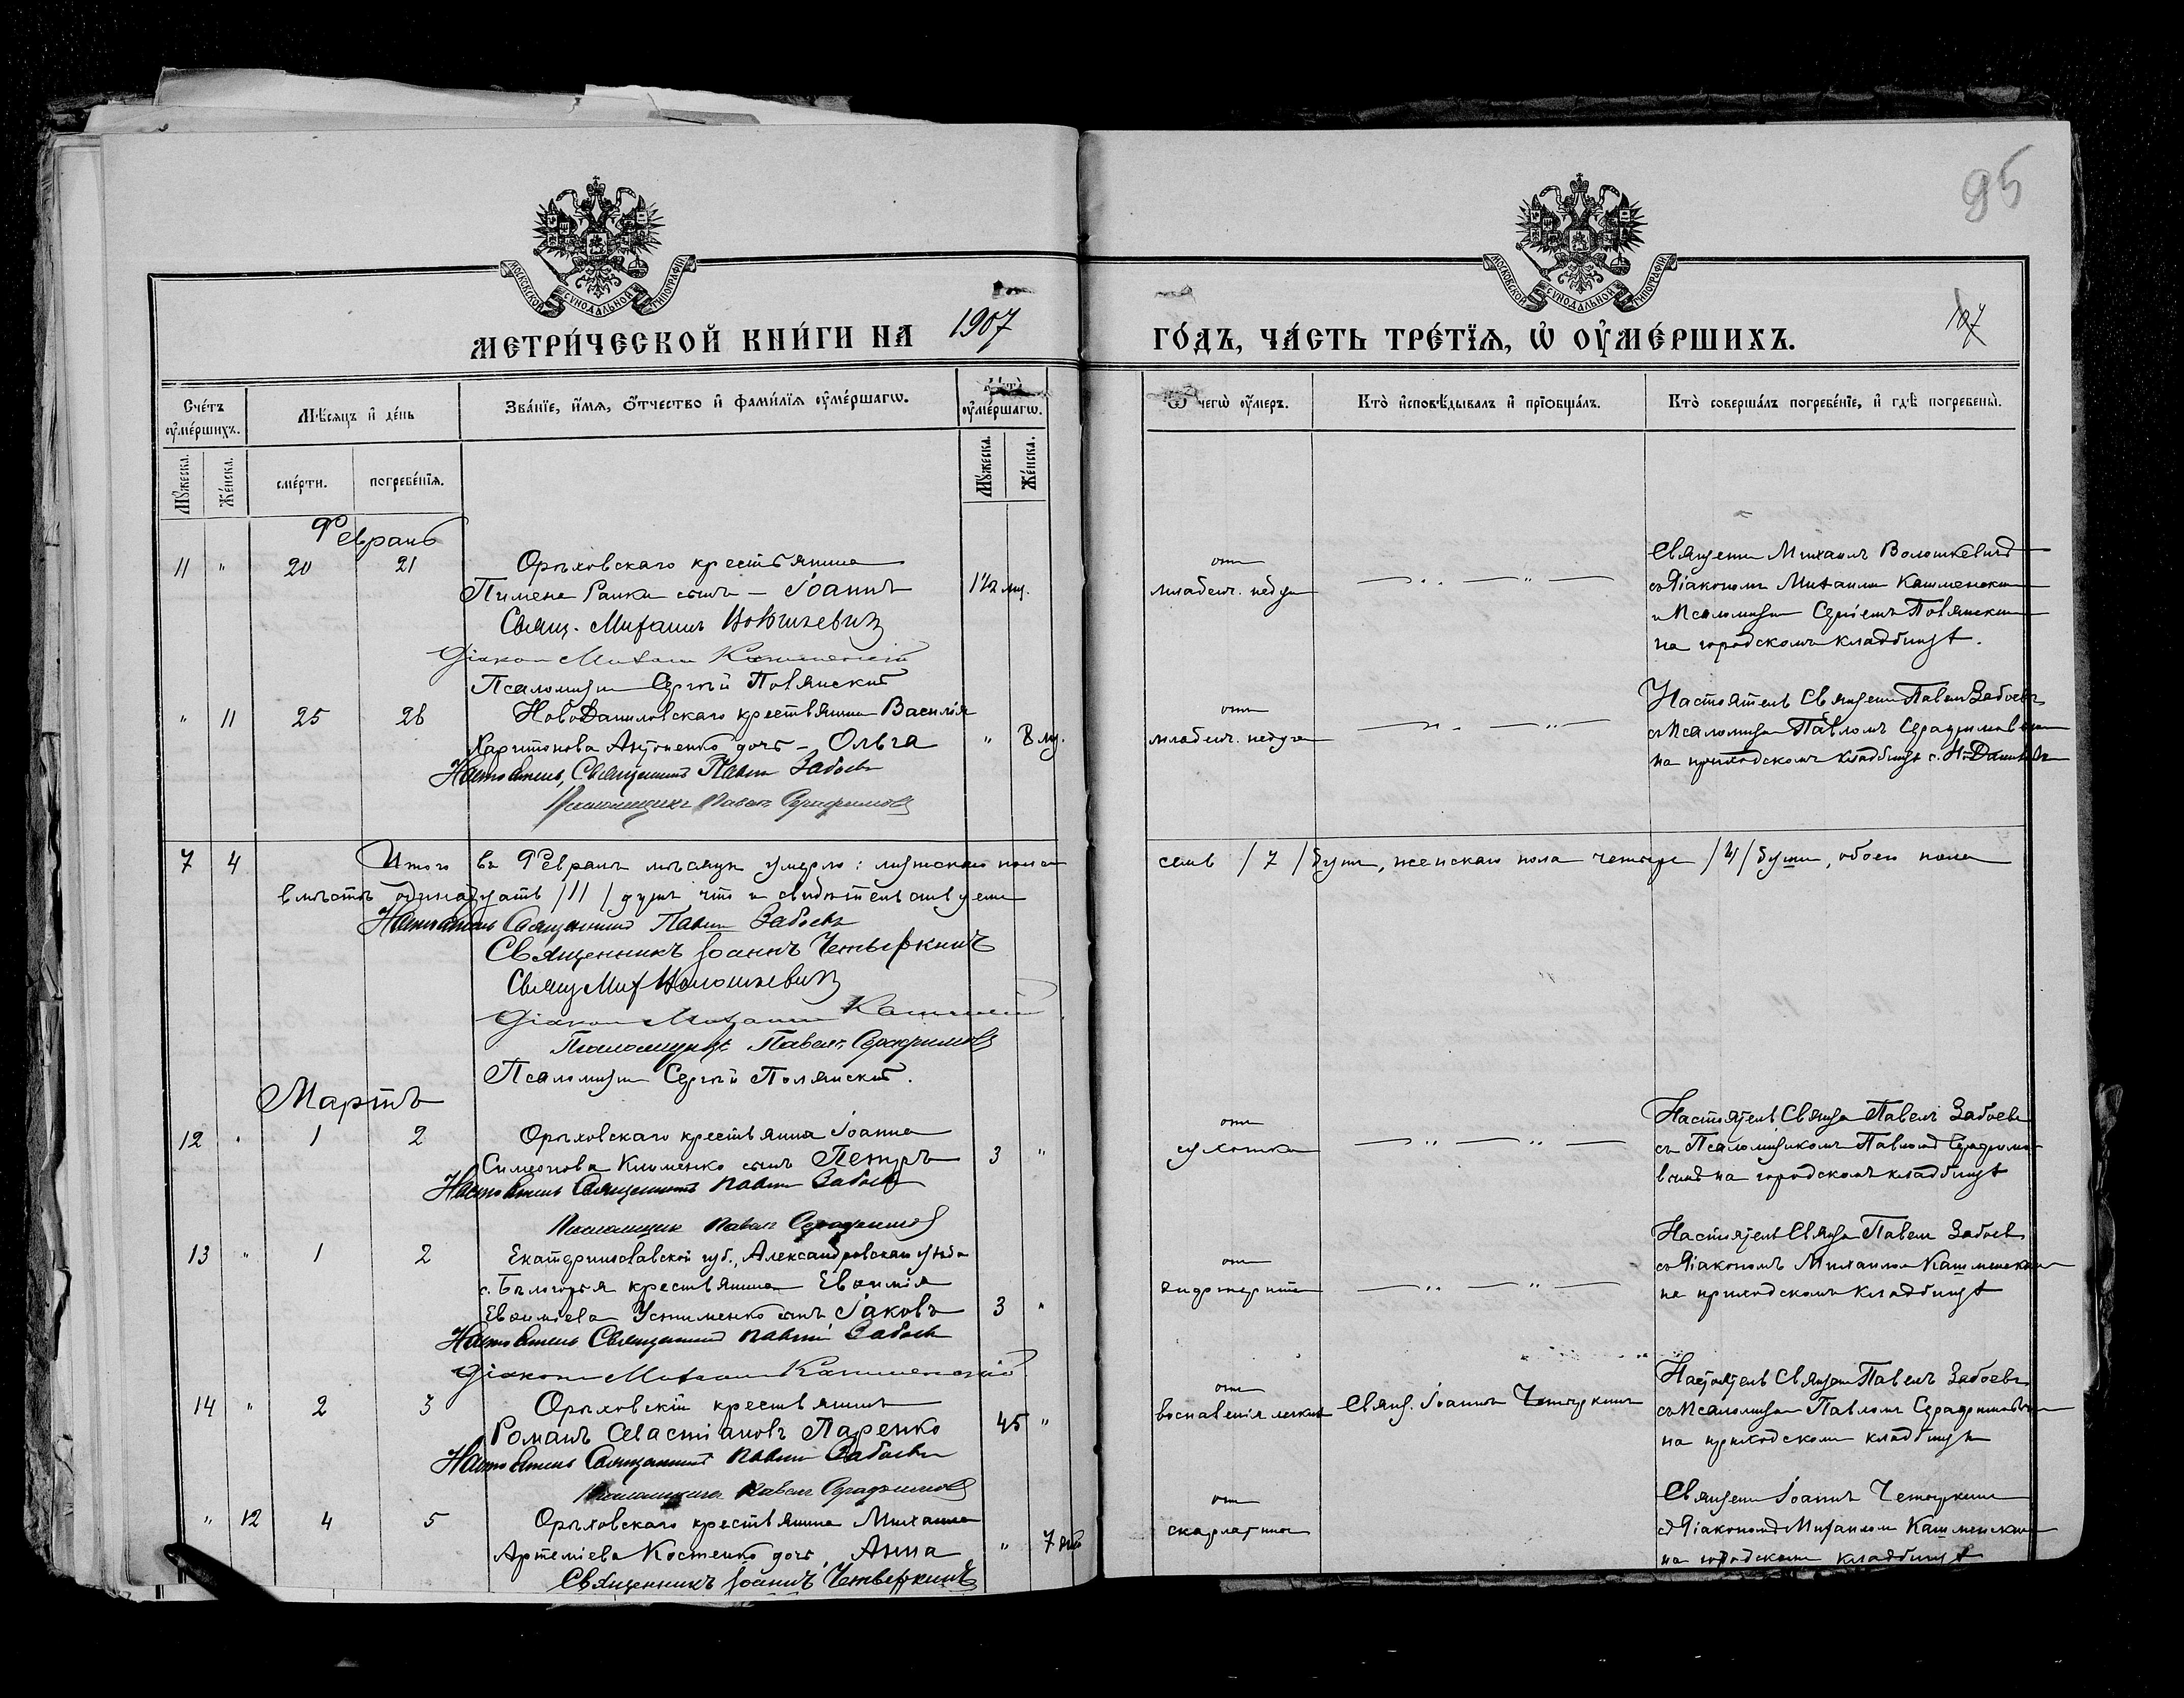 95
МОСКОВСКОЙ СѴНОДАЛЬНОЙ ТИПОГРАФІИ
МОСКОВСКОЙ СѴНОДАЛЬНОЙ ТИПОГРАФІИ
МЕТРИ́ЧЕСКОЙ КНИ́ГИ НА 1907 ГО́ДЪ, ЧА́СТЬ ТРЕ́ТЇѦ, Ѡ҆ ОУ҆МЕ́РШИХЪ.
107
Сче́тъ оу҆ме́ршихъ.
Мѣ́сѧцъ и҆ де́нь
Зва́нїе, и҆́мѧ, ѻ҆́тчество и҆ фами́лїѧ оу҆ме́ршагѡ.
оу҆ме́ршагѡ.
Ѿ чегѡ̀ оу҆́меръ.
Кто̀ и҆сповѣ́дывалъ и҆ прїѻбща́лъ.
Кто̀ соверша́лъ погребе́нїе, и҆ гдѣ̀ погребены̀.
Мꙋ́жеска. Же́нска. сме́рти. погребе́нїѧ. Мꙋ́жеска. Же́нска.
Февраль
11 " 20 21 Орѣховскаго крестьянина
Пимена сынъ – Іоаннъ 1½ мц.
Свящ. Михаилъ Волошкевичъ
Діаконъ Михаилъ Кашменскій
Псаломщ Сергѣй Полянскій
отъ
младенч. недуга
Священ Михаилъ Волошкевичъ
съ Діакономъ Михаиломъ Кашменским
и Псаломщ Сергіемъ Полянским
на городскомъ кладбищѣ.
" 11 25 26 НовоДаниловскаго крестьянина Василія
Харитонова Антоненко дочь – Ольга " 8 мц.
Настоятель, Священникъ Павелъ Забоевъ
Псаломщикъ Павелъ Серафимовъ
отъ
младенч. недуга
Настоятель Священ Павелъ Забоевъ
съ Псаломщ Павломъ Серафимовым
на приходскомъ кладбищѣ с. НДаниловк
7 4 Итого въ Февралѣ мѣсяцѣ умерло: мужскаго пола семь /7/ душъ, женскаго пола четыре /4/ души, обоего пола
вмѣстѣ одинадцать /11/ душъ что и свидѣтельствуемъ
Настоятель Священникъ Павелъ Забоевъ
Священникъ Іоаннъ Четыркинъ
Свящ Мих Волошкевичъ
Діаконъ Михаилъ Кашменскій
Псаломщикъ Павелъ Серафимовъ
Псаломщ Сергѣй Полянскій.
Мартъ
12 " 1 2 Орѣховскаго крестьянина Іоанна
Симеонова Клименко сынъ Петръ 3 "
Настоятель Священникъ Павелъ Забоевъ
Псаломщик Павелъ Серафимовъ
отъ
сухотки
Настоятель Священ Павелъ Забоевъ
съ Псаломщикомъ Павломъ Серафимо-
вымъ на городскомъ кладбищѣ
13 " 1 2 Екатеринославской губ., Александровскаго уѣзда
с. Бѣлогорья крестьянина Евѳимія
Евѳиміева Устименко сынъ Іаковъ 3 "
Настоятель Священникъ Павелъ Забоевъ
Діаконъ Михаилъ Кашменскій
отъ
дифтерита
Настоятель Священ Павелъ Забоевъ
съ Діакономъ Михаиломъ Кашменским
на приходскомъ кладбищѣ
14 " 2 3 Орѣховскій крестьянинъ
Романъ Севастіановъ Паренко 45 "
Настоятель Священникъ Павелъ Забоевъ
Псаломщикъ Павелъ Серафимовъ
отъ
воспаленія легкихъ
Свящ. Іоаннъ Четыркинъ
Настоятель Священ Павелъ Забоевъ
съ Псаломщ Павломъ Серафимовым
на приходскомъ кладбищѣ
" 12 4 5 Орѣховскаго крестьянина Михаила
Артеміева Костенко дочь, Анна " 7
Священникъ Іоаннъ Четыркинъ
отъ
скарлатины
Священ Іоаннъ Четыркинъ
съ Діакономъ Михаиломъ Кашменским
на городскомъ кладбищѣ